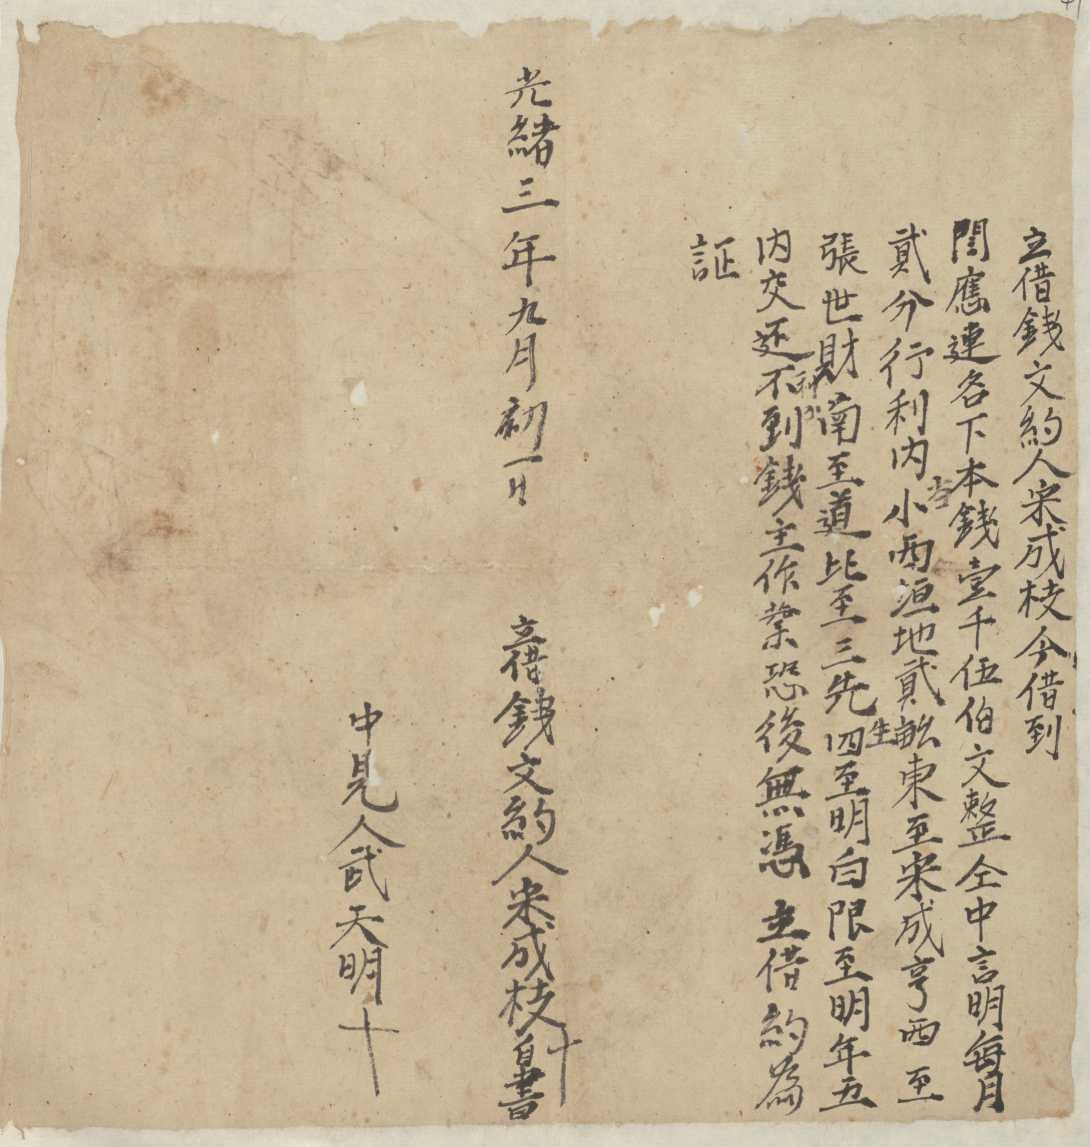 立借錢文約人宋成枝今借到
閆應連名下本錢壹千伍伯文整仝中言明每月
貳分行利内當小西洹地貳畝東至宋成亨西至
張世財南至道北至三先生四至明白限至明年五
内交还不到錢主作業恐後無憑立借約為
証
光緒三年九月初一日
立借錢文約人宋成枝十自書
中見人武天明十